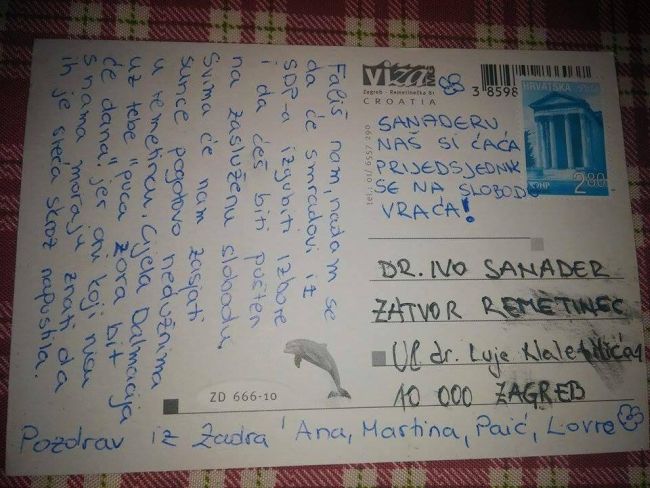 Fališ nam, nadam se
da će smradovi iz
SDP-a izgubiti izbore
i da ćeš biti pušten
na zasluženu slobodu.
Svima će nam zasjati
sunce pogotovo nedužnima
u remetincu. Cijela Dalmacija
uz tebe "puca zora bit
će dana, jer oni koji nisu
s nama moraju znati da
ih je sreća skoz napustila.
Pozdrav iz Zadra Ana, Martina, Paić, Lovre
viza
Zagreb - Remetinečka 81
CROATIA
tel.: 01/ 6557 290
3 8598
HRVATSKA
HP
2.80
SANADERU
NAŠ SI ĆAĆA
PRIJEDSJEDNIK
SE NA SLOBODU
VRAĆA!
DR. IVO SANADER
ZATVOR REMETINEC
Ul dr. Luje Naletilića 1
10 000 ZAGREB
ZD 666-10